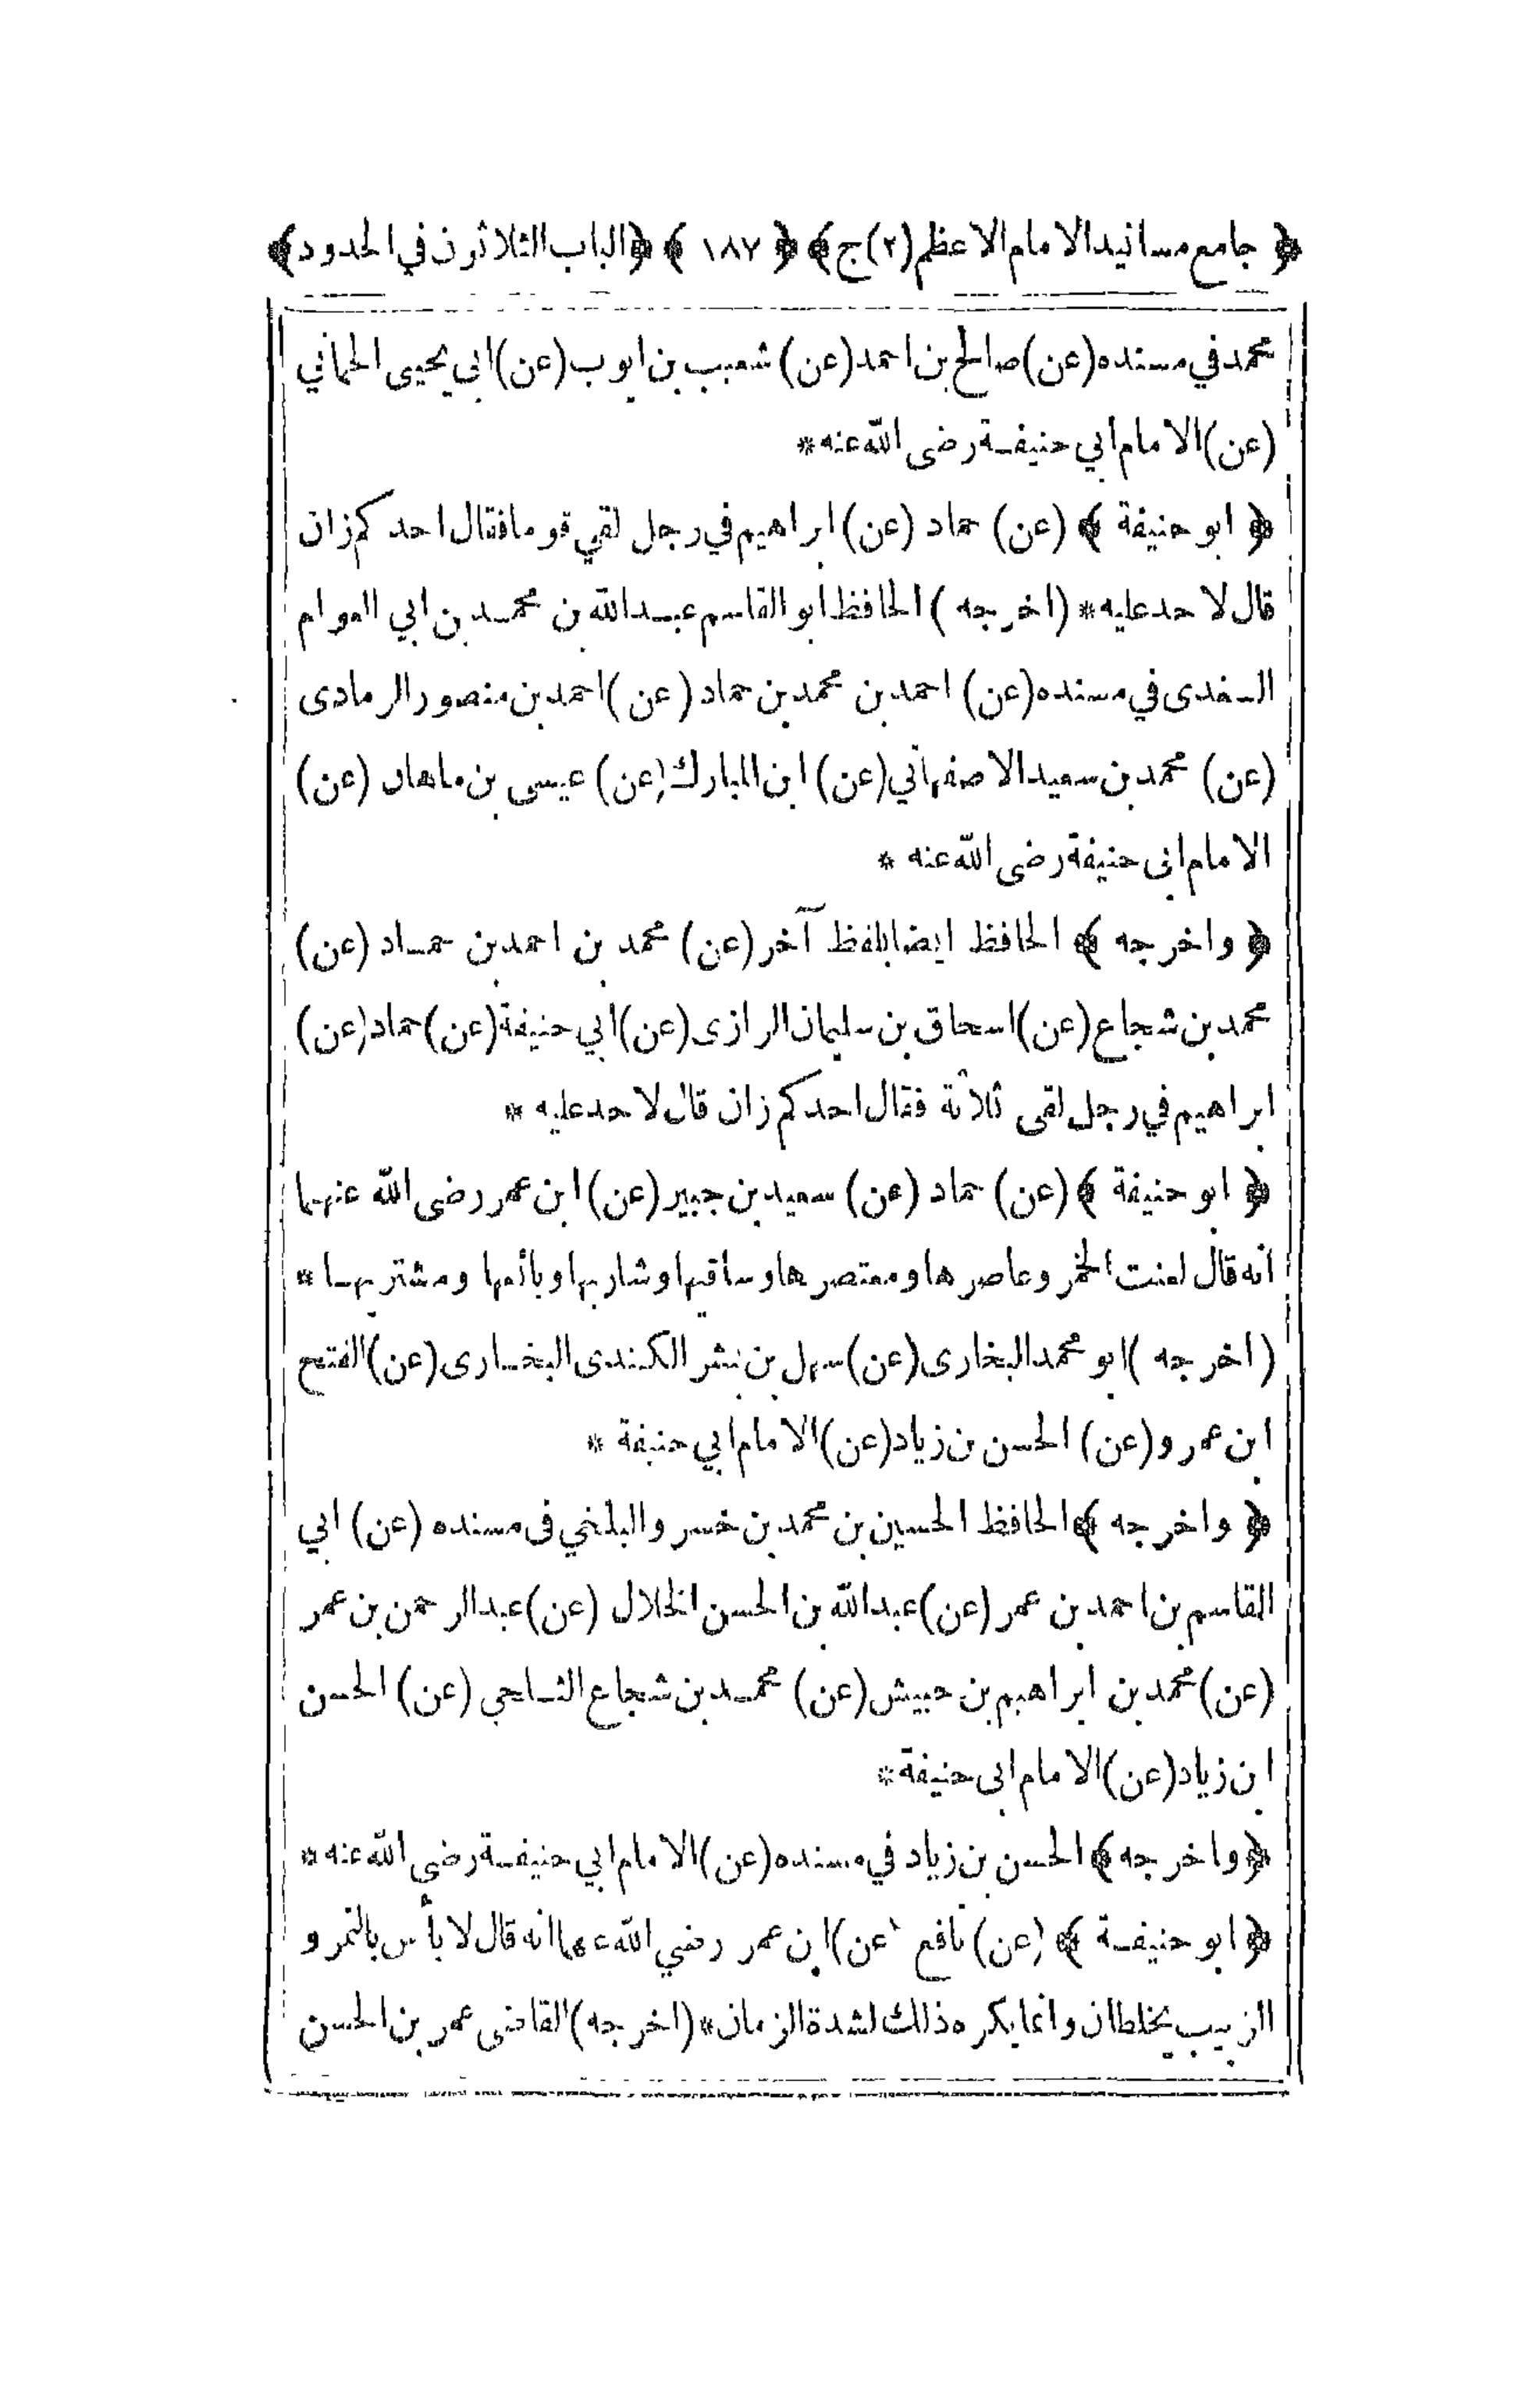 ﴿ جامع مسانيد الامام الاعظم (٢) ج ﴾ ﴿ ١٨٧ ﴾ ﴿ الباب الثلاثون في الحدود ﴾
محمد في مسنده (عن) صالح بن احمد (عن) شعيب بن ايوب (عن) ابى يحيى الحماني
(عن) الامام ابي حنيفة رضى الله عنه *
﴿ ابو حنيفة ﴾ (عن) حماد (عن) ابراهيم في رجل لقي قوما فقال احدكم زان
قال لا حد عليه * (اخرجه) الحافظ ابو القاسم عبد الله بن محمد بن ابي العوام
السغدى في مسنده (عن) احمد بن محمد بن حماد (عن) احمد بن منصور الرمادى
(عن) محمد بن سعيد الاصفهاني (عن) ابن المبارك (عن) عيسى بن ماهان (عن)
الامام ابى حنيفة رضى الله عنه *
﴿ واخرجه ﴾ الحافظ ايضا بلفظ آخر (عن) محمد بن احمد بن حماد (عن)
محمد بن شجاع (عن) اسحاق بن سليمان الرازى (عن) ابي حنيفة (عن) حماد (عن)
ابراهيم في رجل لقى ثلاثة فقال احدكم زان قال لا حد عليه *
﴿ ابو حنيفة ﴾ (عن) حماد (عن) سعيد بن جبير (عن) ابن عمر رضى الله عنهما
انه قال لعنت الخمر وعاصرها ومعتصرها وساقيها وشاربها وبائعها ومشتريها *
(اخرجه) ابو محمد البخارى (عن) سهل بن بشر الكندى البخارى (عن) الفتح
ابن عمرو (عن) الحسن بن زياد (عن) الامام ابي حنيفة *
﴿ واخرجه ﴾ الحافظ الحسين بن محمد بن خسرو البلخي فى مسنده (عن) ابي
القاسم بن احمد بن عمر (عن) عبد الله بن الحسن الخلال (عن) عبد الرحمن بن عمر
(عن) محمد بن ابراهيم بن حبيش (عن) محمد بن شجاع الثلجي (عن) الحسن
ابن زياد (عن) الامام ابى حنيفة *
﴿ واخرجه ﴾ الحسن بن زياد في مسنده (عن) الامام ابي حنيفة رضى الله عنه *
﴿ ابو حنيفة ﴾ (عن) نافع (عن) ابن عمر رضي الله عنهما انه قال لا بأس بالتمر و
الزبيب يخلطان وانما يكره ذلك لشدة الزمان * (اخرجه) القاضى عمر بن الحسن